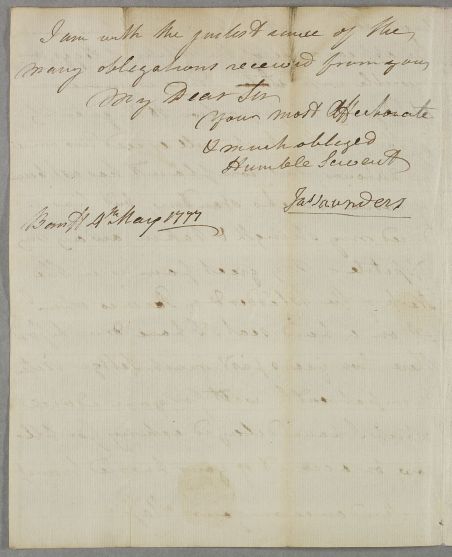 I am with the justest sence of the
many obligations received from you
My Dear Sir
Your most Affectionate
& much obliged
Humble Servant
Jas Saunders
4th May 1777